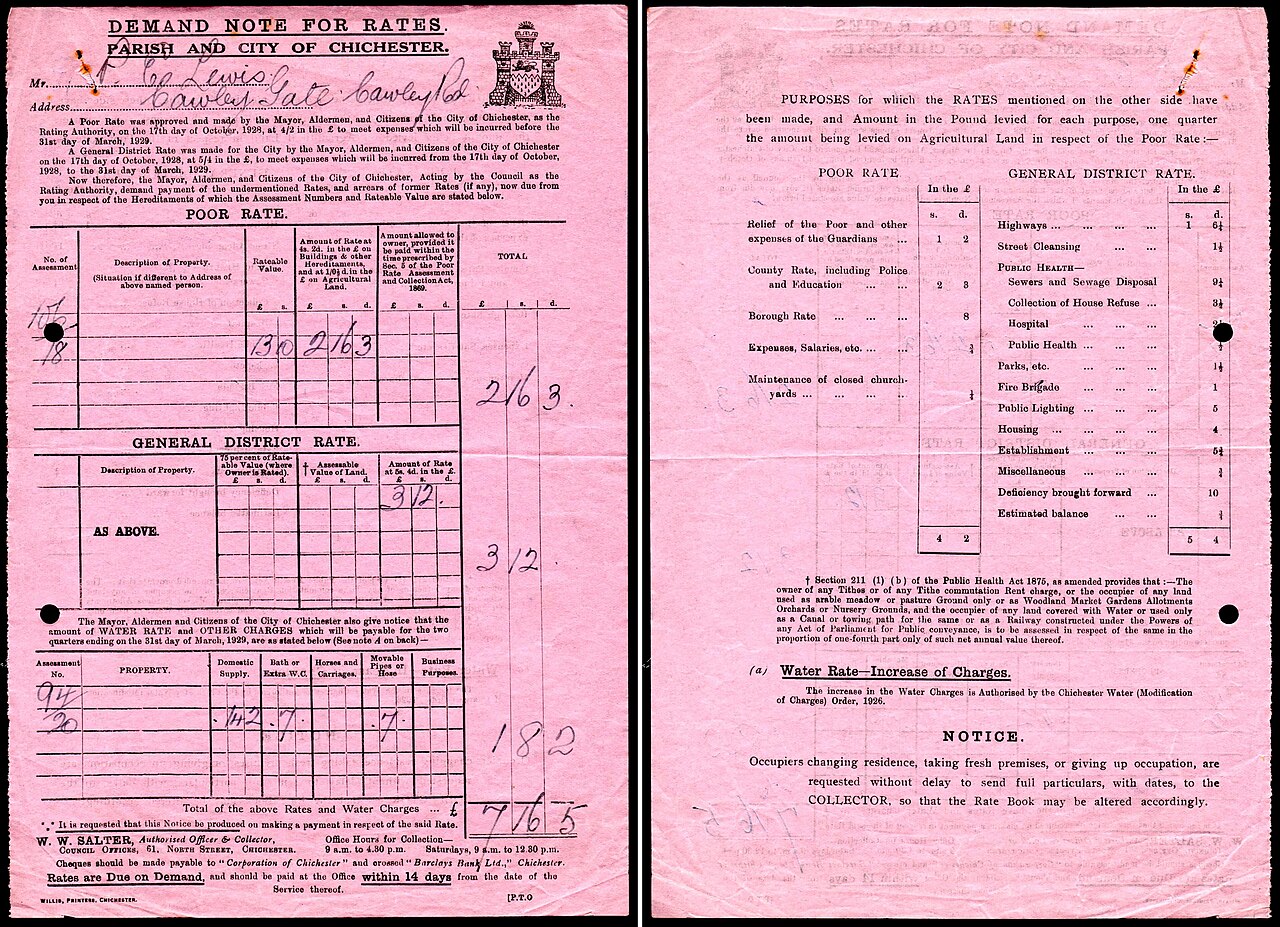 DEMAND NOTE FOR RATES.
PARISH AND CITY OF CHICHESTER.
Mr. E Lewis
Address Cawley Gate Cawley Rd.
A Poor Rate was approved and made by the Mayor, Aldermen, and Citizens of the City of Chichester, as the
Rating Authority, on the 17th day of October, 1928, at 4/2 in the £ to meet expenses which will be incurred before the
31st day of March, 1929.
A General District Rate was made for the City by the Mayor, Aldermen, and Citizens of the City of Chichester
on the 17th day of October, 1928, at 5/4 in the £, to meet expenses which will be incurred from the 17th day of October,
1928, to the 31st day of March, 1929.
Now therefore, the Mayor, Aldermen, and Citizens of the City of Chichester, Acting by the Council as the
Rating Authority, demand payment of the undermentioned Rates, and arrears of former Rates (if any), now due from
you in respect of the Hereditaments of which the Assessment Numbers and Rateable Value are stated below.
POOR RATE.
No. of Assessment
Description of Property.
(Situation if different to Address of above named person.
Rateable Value.
Amount of Rate at 4s. 2d. in the £ on Buildings & other Hereditaments, and at 1/0½d. in the £ on Agricultural Land.
Amount allowed to owner, provided it be paid within the time prescribed by Sec. 5 of the Poor Rate Assessment and Collection Act, 1869.
TOTAL
£ s. £ s. d. £ s. d. £ s. d.
78 13 10 2 16 3
2 16 3.
GENERAL DISTRICT RATE.
Description of Property.
75 per cent of Rateable Value (where Owner is Rated).
† Assessable Value of Land.
Amount of Rate at 5s. 4d. in the £.
£ s. d. £ s. d. £ s. d.
3 12 .
AS ABOVE.
3 12
The Mayor, Aldermen and Citizens of the City of Chichester also give notice that the
amount of WATER RATE and OTHER CHARGES which will be payable for the two
quarters ending on the 31st day of March, 1929, are as stated below (See note A on back)—
Assessment No.
PROPERTY.
Domestic Supply.
Bath or Extra W.C.
Horses and Carriages.
Movable Pipes or Hose
Business Purposes.
94
20 . 14 2 . 7 . . 7 .
1 8 2
Total of the above Rates and Water Charges ... £ 7 16 5
It is requested that this Notice be produced on making a payment in respect of the said Rate.
W. W. SALTER, Authorised Officer & Collector, Office Hours for Collection—
COUNCIL OFFICES, 61, NORTH STREET, CHICHESTER. 9 a.m. to 4.30 p.m. Saturdays, 9 a.m. to 12.30 p.m.
Cheques should be made payable to "Corporation of Chichester" and crossed "Barclays Bank Ltd.," Chichester.
Rates are Due on Demand, and should be paid at the Office within 14 days from the date of the
Service thereof.
WILLIS, PRINTERS, CHICHESTER. [P.T.O
PURPOSES for which the RATES mentioned on the other side have
been made, and Amount in the Pound levied for each purpose, one quarter
the amount being levied on Agricultural Land in respect of the Poor Rate:—
POOR RATE
In the £
s. d.
Relief of the Poor and other
expenses of the Guardians ... 1 2
County Rate, including Police
and Education ... ... 2 3
Borough Rate ... ... ... 8
Expenses, Salaries, etc. ... ... ¾
Maintenance of closed church-
yards ... ... ... ...
4 2
GENERAL DISTRICT RATE.
In the £
s. d.
Highways ... ... ... ... 1 6¼
Street Cleansing ... ... 1½
PUBLIC HEALTH—
Sewers and Sewage Disposal 9¼
Collection of House Refuse ... 3½
Hospital ... ... ...
Public Health ... ... ...
Parks, etc. ... ... ... 1½
Fire Brigade ... ... ... 1
Public Lighting ... ... ... 5
Housing ... ... ... ... 4
Establishment ... ... ... 5¾
Miscellaneous ... ... ...
Deficiency brought forward ... 10
Estimated balance ... ...
5 4
† Section 211 (1) (b) of the Public Health Act 1875, as amended provides that:—The
owner of any Tithes or of any Tithe commutation Rent charge, or the occupier of any land
used as arable meadow or pasture Ground only or as Woodland Market Gardens Allotments
Orchards or Nursery Grounds, and the occupier of any land covered with Water or used only
as a Canal or towing path for the same or as a Railway constructed under the Powers of
any Act of Parliament for Public conveyance, is to be assessed in respect of the same in the
proportion of one-fourth part only of such net annual value thereof.
(a) Water Rate—Increase of Charges.
The increase in the Water Charges is Authorised by the Chichester Water (Modification
of Charges) Order, 1926.
NOTICE.
Occupiers changing residence, taking fresh premises, or giving up occupation, are
requested without delay to send full particulars, with dates, to the
COLLECTOR, so that the Rate Book may be altered accordingly.